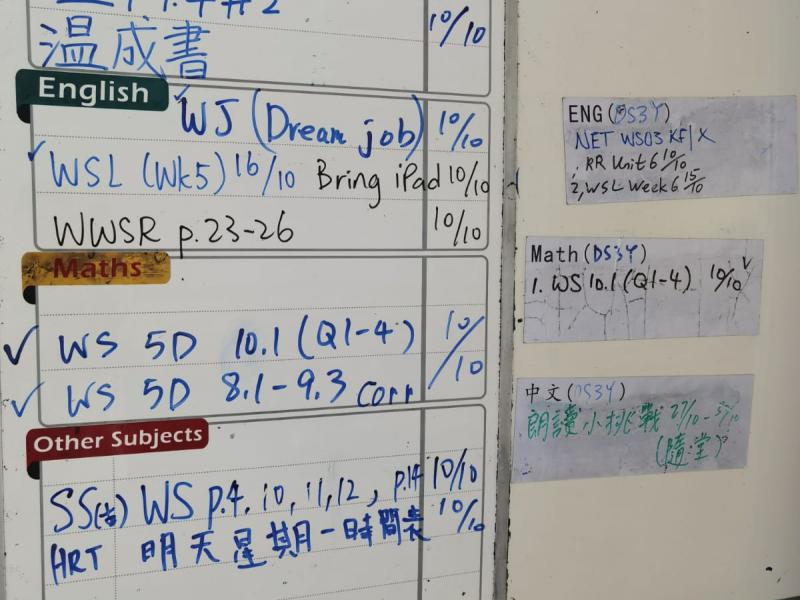 10/10
温成書
English
WJ (Dream job) 10/10
WSL (Wk5) 16/10 Bring iPad 10/10
WWSR p.23-26 10/10
Maths
WS 5D 10.1 (Q1-4) 10/10
WS 5D 8.1-9.3 corr
Other Subjects
SS WS p.4, 10, 11, 12, p.14 10/10
HRT 明天星期一時間表 10/10
ENG (DS3Y)
NET WS03 KF/X
RR Unit 6 10/10
2, WSL Week 6 15/10
Math (DS3Y)
1. WS 10.1 (Q1-4) 10/10
中文 (DS3Y)
朗讀小挑戰 27/10
(隨堂)